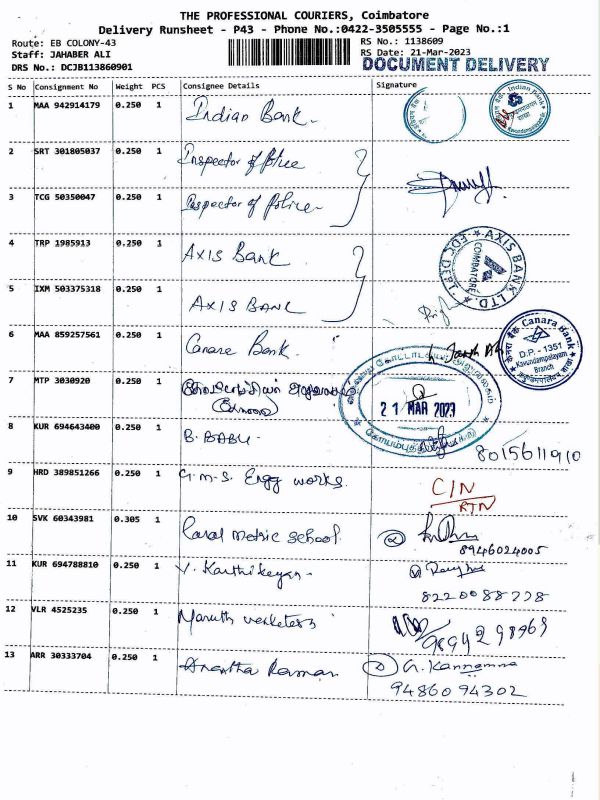 THE PROFESSIONAL COURIERS, Coimbatore
Delivery Runsheet - P43 - Phone No.:0422-3505555 - Page No.:1
Route: EB COLONY-43
RS No.: 1138609
Staff: JAHABER ALI
RS Date: 21-Mar-2023
DRS No.: DCJB113860901
DOCUMENT DELIVERY
S No Consignment No Weight PCS Consignee Details Signature
1 MAA 942914179 0.250 1 Indian Bank.
2 SRT 301805037 0.250 1 Inspector of Police
3 TCG 50350047 0.250 1 Inspector of Police
4 TRP 1985913 0.250 1 AXIS Bank
AXIS BANK LTD.
COIMBATORE
5 IXM 503375318 0.250 1 AXIS BANK
6 MAA 859257561 0.250 1 Canara Bank.
Canara Bank
D.P. - 1351
Kavundampalayam
Branch
7 MTP 3030920 0.250 1
21 MAR 2023
8 KUR 694643400 0.250 1 B. BABU
8015611910
9 HRD 389851266 0.250 1 G.M.S. Engg works.
CIN
RTN
10 SVK 60343981 0.305 1 metric school.
8946024005
11 KUR 694788810 0.250 1 V. Karthikeyan
12 VLR 4525235 0.250 1
13 ARR 30333704 0.250 1 Anantha Raman
G. Kannamma
9486094302